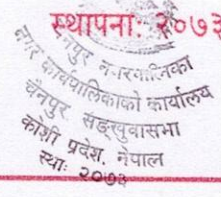 स्थापना: २०७३
चैनपुर नगरपालिका
नगर कार्यपालिकाको कार्यालय
चैनपुर, सङ्खुवासभा
कोशी प्रदेश, नेपाल
स्था: २०७३